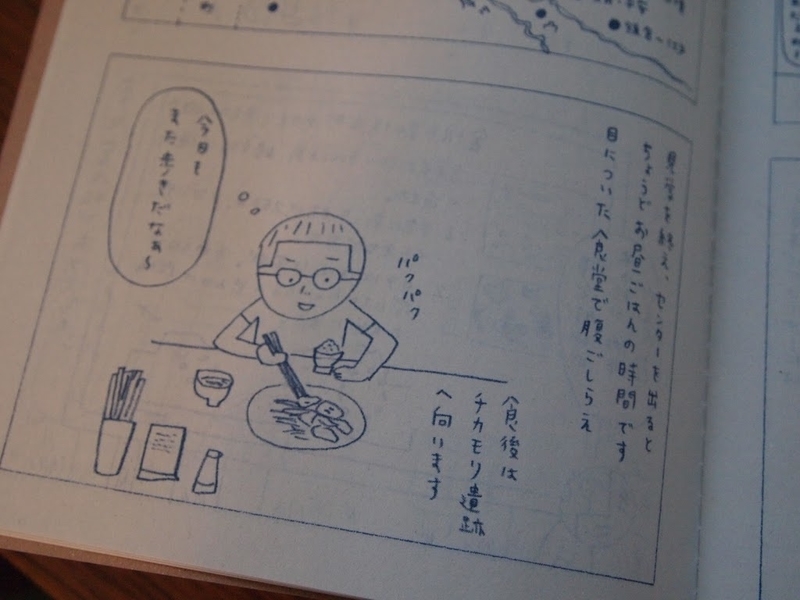 見学を終え、センターを出ると
ちょうどお昼ごはんの時間です
目についた食堂で腹ごしらえ
パクパク
今日も
また歩きだなぁ〜
食後は
チカモリ遺跡
へ向います